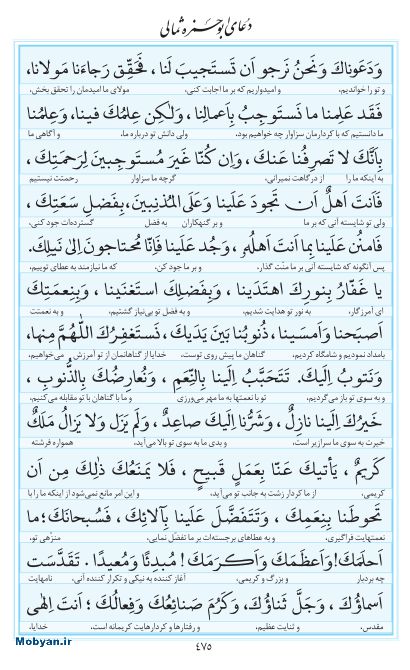 دعای ابوحمزه ثمالی
وَدَعَوناكَ وَنَحنُ نَرجو اَن تَستَجيبَ لَنا ، فَحَقِّق رَجاءَنا مَولانا،
و تو را خوانديم، و اميدواريم كه بر ما اجابت كنى، مولاى ما اميدمان را تحقق بخش،
فَقَد عَلِمنا ما نَستَوجِبُ بِاَعمالِنا ، وَلكِن عِلمُكَ فينا، وَعِلمُنا
ما دانستيم كه با كردارمان سزاوار چه خواهيم بود. ولى دانش تو درباره ما، و آگاهى ما
بِاَنَّكَ لا تَصرِفُنا عَنكَ ، وَاِن كُنّا غَيرَ مُستَوجِبينَ لِرَحمَتِكَ ،
به اينكه ما را از درگاهت نميرانى، گرچه ما سزاوار رحمتت نيستيم
فَاَنتَ اَهلٌ اَن تَجودَ عَلَينا وَعَلَى المُذنِبينَ،بِفَضلِ سَعَتِكَ ،
ولى تو شايسته آنى كه بر ما و بر گنهكاران به فضل گسترده‌ات جود كنى،
فَامنُن عَلَينا بِما اَنتَ اَهلُهُ، وَجُد عَلَينا فَاِنّا مُحتاجونَ اِلى نَيلِكَ.
پس آنگونه كه شايسته آنى بر ما منّت گذار، و بر ما جود كن، كه ما نيازمند به عطاى توييم،
يا غَفّارُ بِنورِكَ اهتَدَينا ، وَبِفَضلِكَ استَغنَينا ، وَبِنِعمَتِكَ
اى آمرزگار، به نور تو هدايت شديم، و به فضل تو بى‌نياز گشتيم، و به نعمتت
اَصبَحنا وَاَمسَينا، ذُنوبُنا بَينَ يَدَيكَ، نَستَغفِرُكَ اللّهُمَّ مِنها،
بامداد نموديم و شامگاه كرديم، گناهان ما پيش روى توست، خدايا از گناهانمان از تو آمرزش مى‌خواهيم،
وَنَتوبُ اِلَيكَ. تَتَحَبَّبُ اِلَينا بِالنِّعَمِ ، وَنُعارِضُكَ بِالذُّنوبِ ،
و به سوى تو باز مى‌گرديم، تو با نعمتها به ما مهر مى‌ورزى و ما با گناهان با تو مقابله مى‌كنيم،
خَيرُكَ اِلَينا نازِلٌ ، وَشَرُّنا اِلَيكَ صاعِدٌ ، وَلَم يَزَل وَلا يَزالُ مَلَكٌ
خيرت به سوى ما سرازير است، و بدى ما به سوى تو بالا مى‌آيد، همواره فرشته
كَريمٌ ، يَأتيكَ عَنّا بِعَمَلٍ قَبيحٍ ، فَلا يَمنَعُكَ ذلِكَ مِن اَن
كريمى، از ما كردار زشت به جانب تو مى‌آيد، و اين امر مانع نمى‌شود از اينكه ما را با
تَحوطَنا بِنِعَمِكَ ، وَتَتَفَضَّلَ عَلَينا بِآلائِكَ ، فَسُبحانَكَ؛ ما
نعمتهايت فراگيرى، و به عطاهاى برجسته‌ات بر ما تفضّل نمايى، منزّهى تو،
اَحلَمَكَ!وَاَعظَمَكَ وَاَكرَمَكَ! مُبدِئًا وَمُعيدًا . تَقَدَّسَت
چه بردبار و بزرگ و كريمى، آغاز كننده به نيكى و تكرار كننده آنى، نامهايت
اَسماؤُكَ ، وَجَلَّ ثَناؤُكَ، وَكَرُمَ صَنائِعُكَ وَفِعالُكَ ؛ اَنتَ اِلهى
مقدس، و ثنايت عظيم، و رفتارها و كردارهايت كريمانه است. خدايا،
۴۷۵
Mobyan.ir